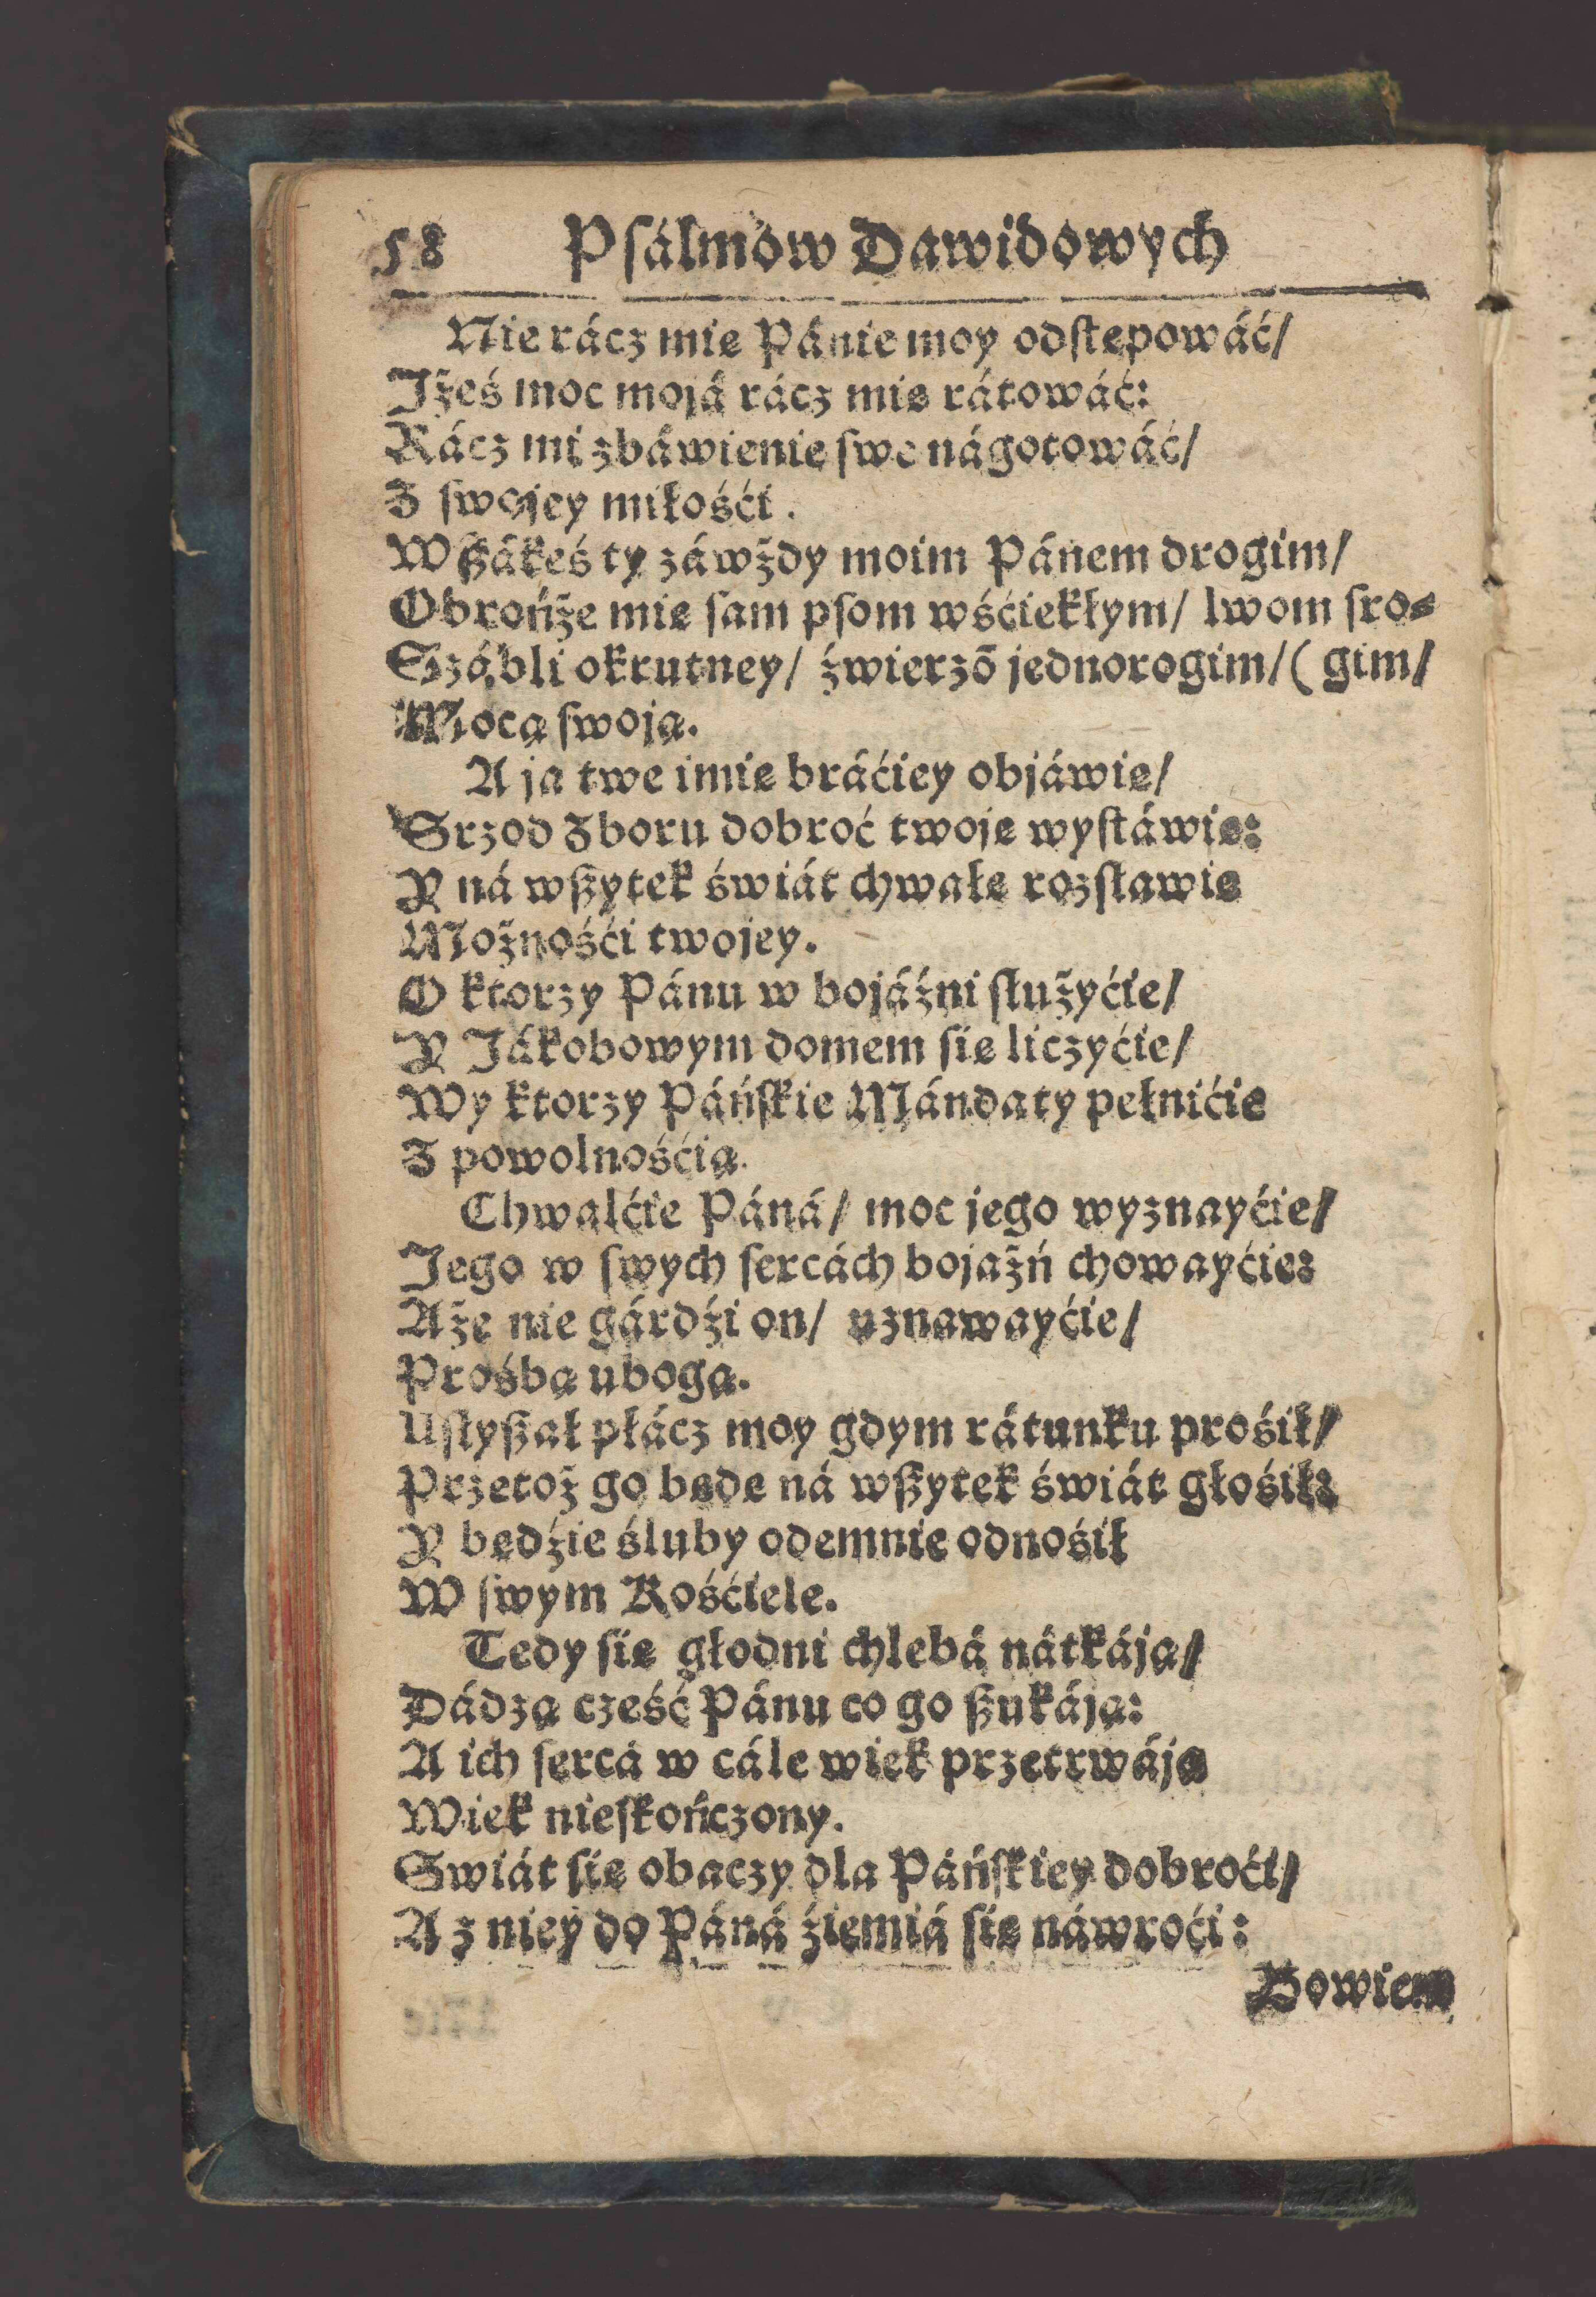 58 Psálmow Dawidowych
Nie rácz mię Pánie moy odstępowáć/
Iżeś moc mojá rácz mię rátowáć:
Rácz mi zbáwienie swe nágotowáć/
Z swojey miłośći.
Wßákeś ty záwżdy moim Pánem drogim/
Obrońże mię sam psom wśćiekłym/ lwom sro=
Szábli okrutney/ źwierzõ jednorogim/ (gim/
Mocą swoją.
A ja twe imię bráćiey objáwię/
Srzod Zboru dobroć twoję wystáwię:
Y ná wßytek świát chwałę rozsławię
Możnośći twojey.
O ktorzy Pánu w bojáźni służyćie/
Y Jákobowym domem się liczyćie/
Wy ktorzy Páńskie Mándaty pełnićie
Z powolnośćią.
Chwalćie Páná/ moc jego wyznayćie/
Jego w swych sercách bojaźń chowayćie:
Aże nie gárdźi on/ uznawayćie/
Prośbą ubogą.
Usłyßał płácz moy gdym rátunku prośił/
Przetoż go będę ná wßytek świát głośił:
Y będźie śluby odemnie odnośił
W swym Kośćiele.
Tedy się głodni chlebá nátkáją/
Dádzą cześć Pánu co go ßukáją:
A ich sercá w cále wiek przetrwáją
Wiek nieskończony.
Swiát się obaczy dla Páńskiey dobroći/
A z niey do Páná źiemiá się náwroći:
Bowiem